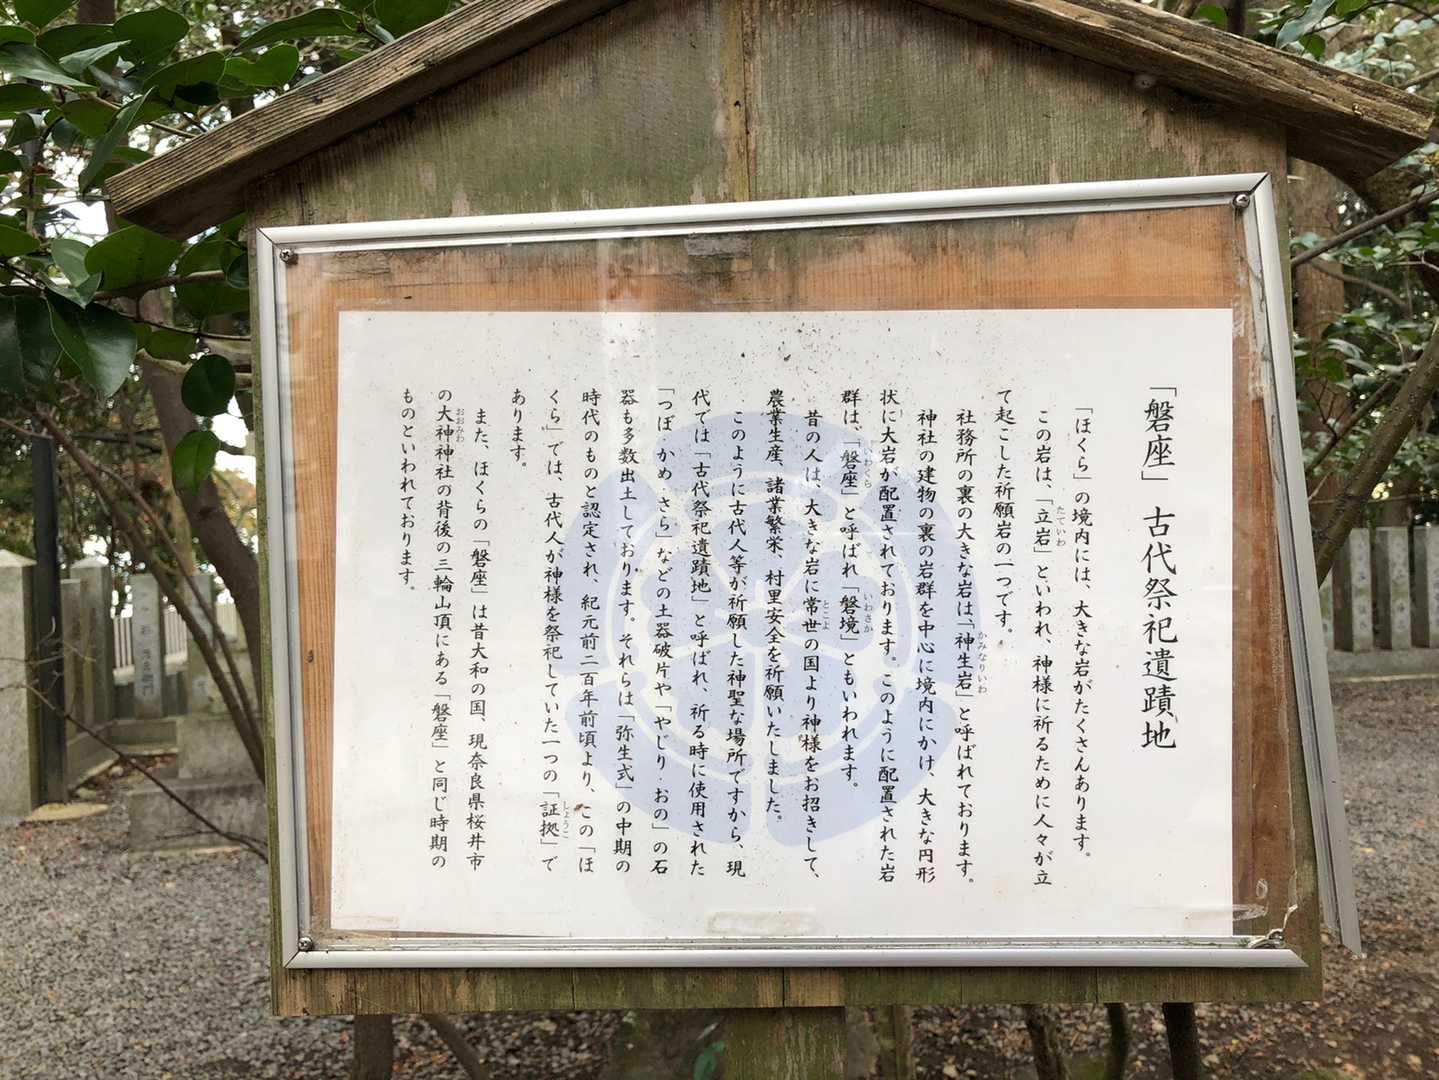 「磐座」 古代祭祀遺蹟地
「ほくら」の境内には、大きな岩がたくさんあります。
この岩は、「立岩」といわれ、神様に祈るために人々が立
て起こした祈願岩の一つです。
社務所の裏の大きな岩は「神生岩」と呼ばれております。
神社の建物の裏の岩群を中心に境内にかけ、大きな円形
状に大岩が配置されております。このように配置された岩
群は、「磐座」と呼ばれ「磐境」ともいわれます。
昔の人は、大きな岩に常世の国より神様をお招きして、
農業生産、諸業繁栄、村里安全を祈願いたしました。
このように古代人等が祈願した神聖な場所ですから、現
代では「古代祭祀遺蹟地」と呼ばれ、祈る時に使用された
「つぼ・かめ・さら」などの土器破片や「やじり・おの」の石
器も多数出土しております。それらは「弥生式」の中期の
時代のものと認定され、紀元前二百年前頃より、この「ほ
くら」では、古代人が神様を祭祀していた一つの「証拠」で
あります。
また、ほくらの「磐座」は昔大和の国、現奈良県桜井市
の大神神社の背後の三輪山頂にある「磐座」と同じ時期の
ものといわれております。